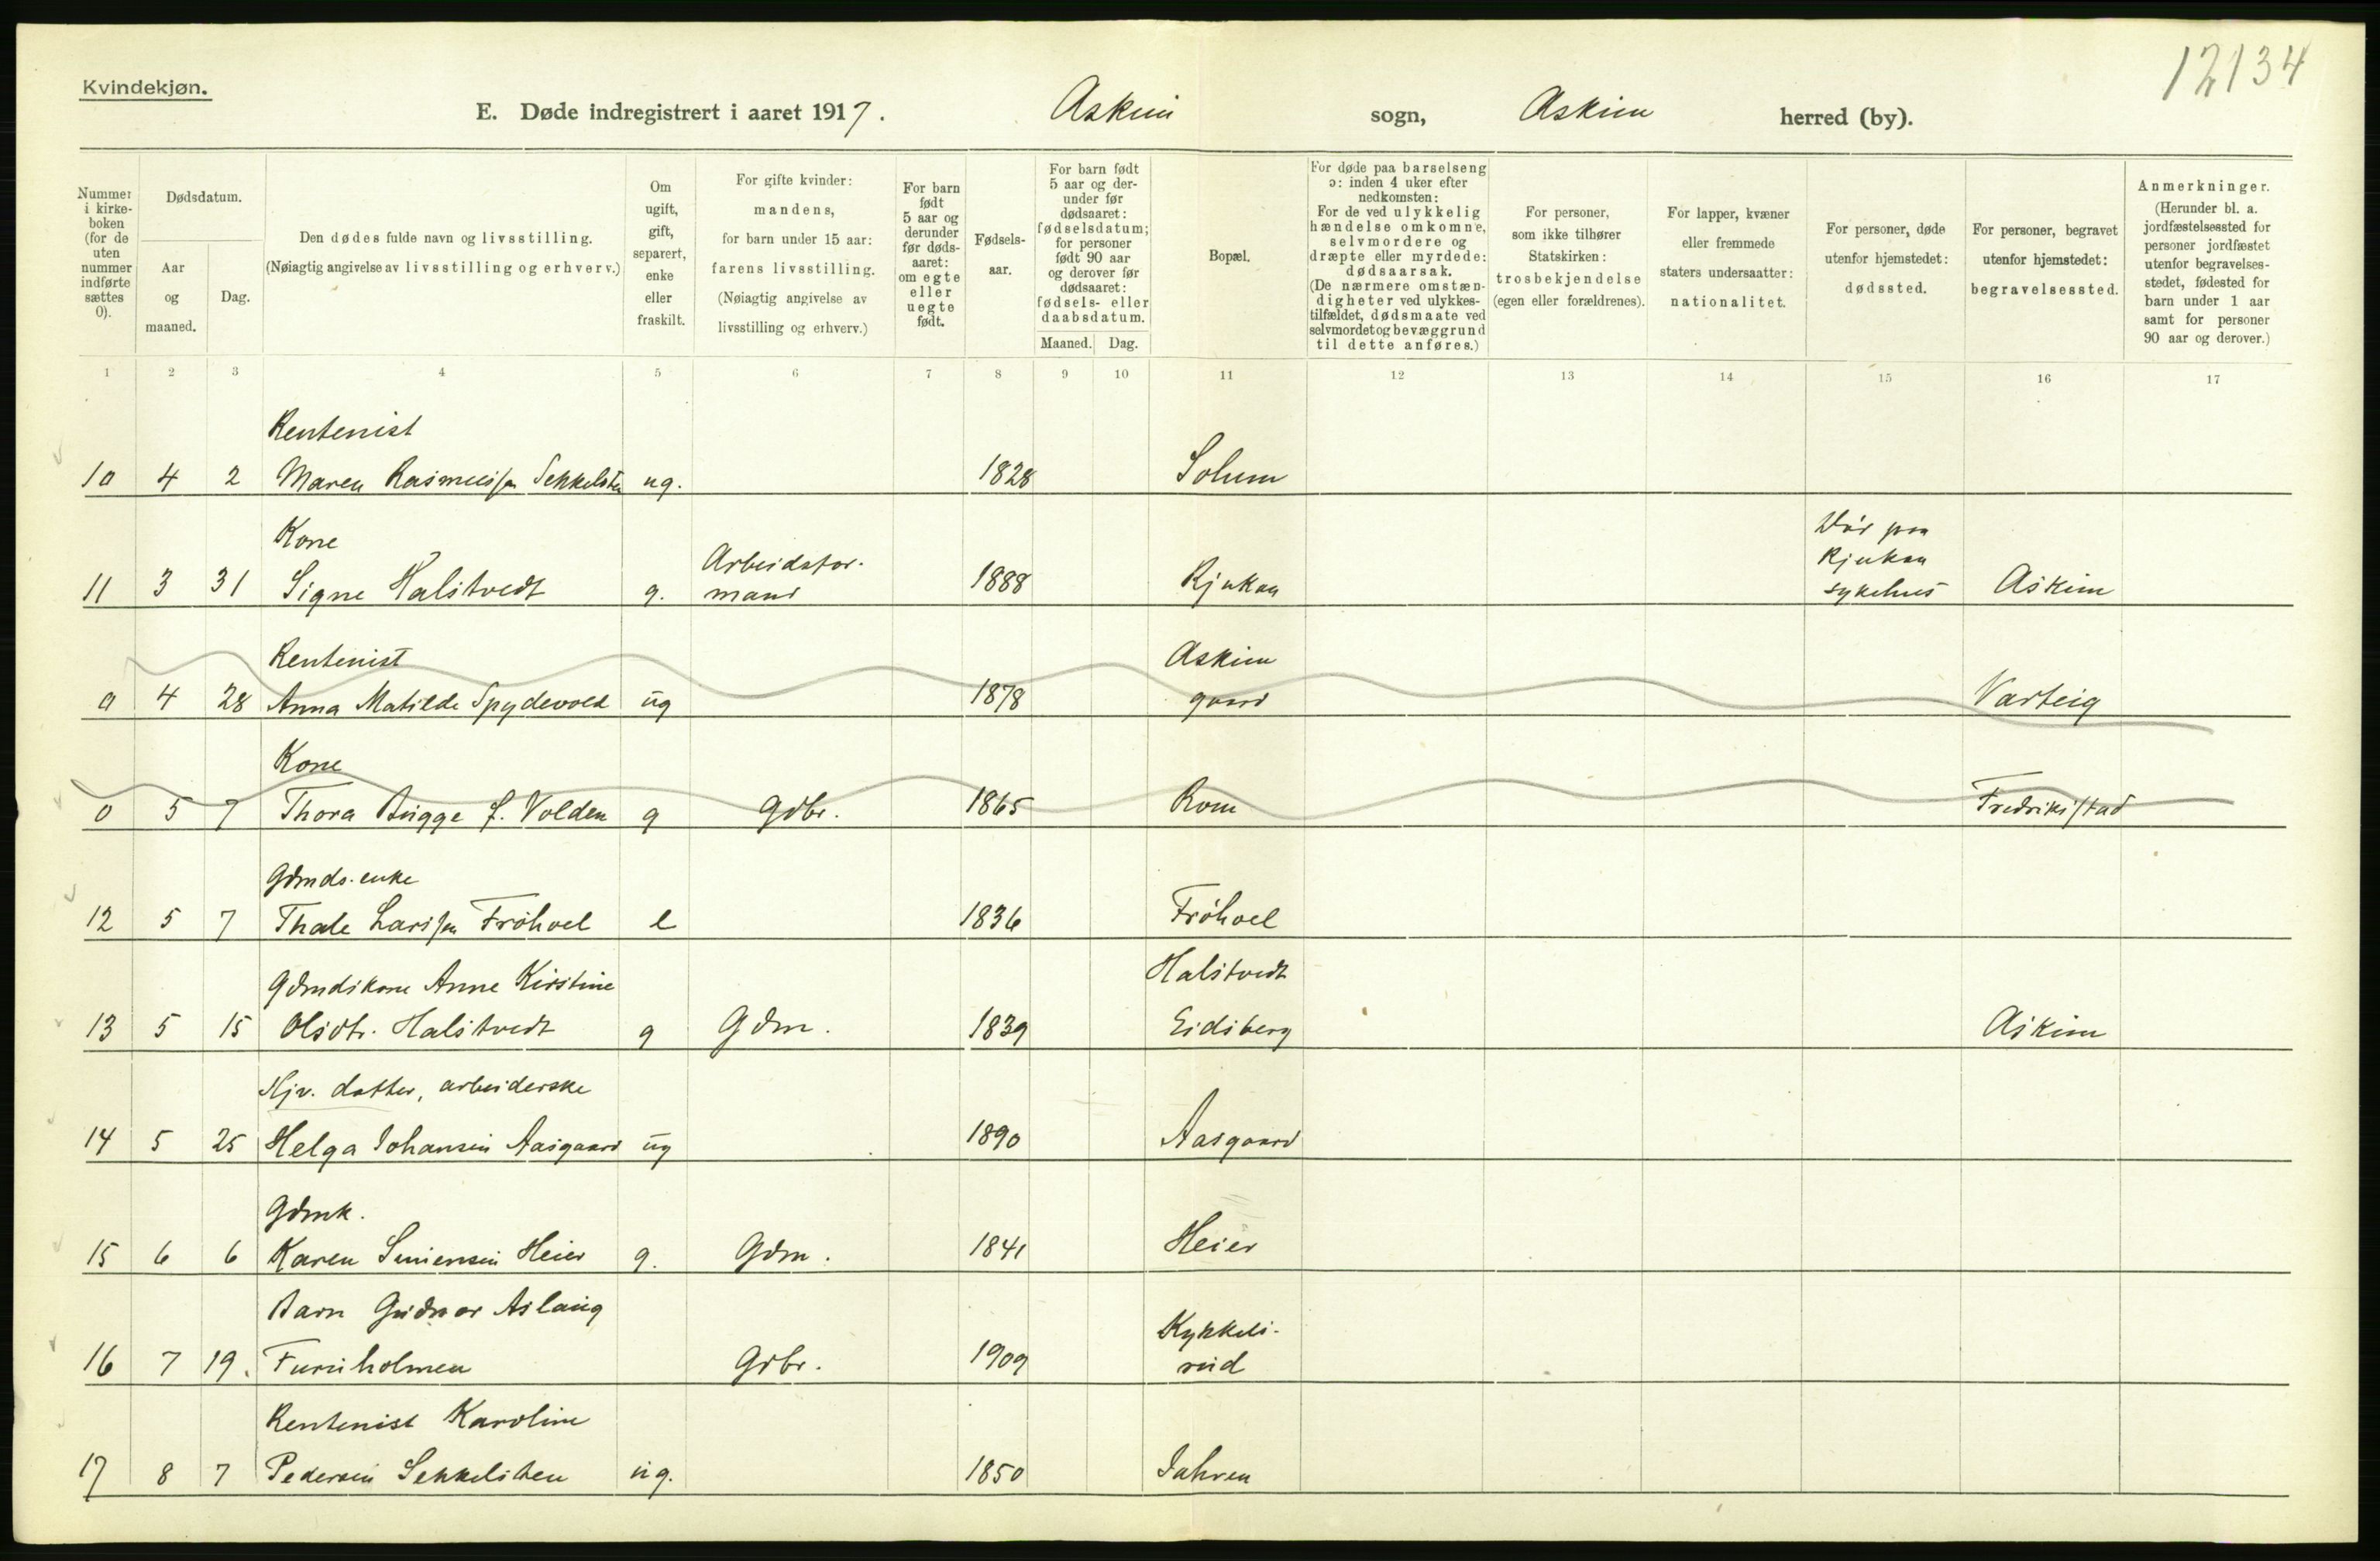 12134
Kvindekjøn.
E. Døde indregistrert i aaret 1917. Askim sogn, Askim herred (by).
Nummer i kirke-boken (for de uten nummer indførte sættes 0).
Dødsdatum.
Aar og maaned.
Dag.
Den dødes fulde navn og livsstilling.
(Nøiagtig angivelse av livsstilling og erhverv.)
Om ugift, gift, separert, enke eller fraskilt.
For gifte kvinder: mandens, for barn under 15 aar: farens livsstilling.
(Nøiagtig angivelse av livsstilling og erhverv.)
For barn født 5 aar og derunder før døds-aaret: om egte eller uegte født.
Fødsels-aar.
For barn født 5 aar og der-under før dødsaaret: fødselsdatum; for personer født 90 aar og derover før dødsaaret: fødsels- eller daabsdatum.
Maaned. Dag.
Bopæl.
For døde paa barselseng ɔ: inden 4 uker efter nedkomsten:
For de ved ulykkelig hændelse omkomne, selvmordere og dræpte eller myrdede: dødsaarsak.
(De nærmere omstæn-digheter ved ulykkes-tilfældet, dødsmaate ved selvmordet og bevæggrund til dette anføres.)
For personer, som ikke tilhører Statskirken: trosbekjendelse (egen eller forældrenes).
For lapper, kvæner eller fremmede staters undersaatter: nationalitet.
For personer, døde utenfor hjemstedet: dødssted.
For personer, begravet utenfor hjemstedet: begravelsessted.
Anmerkninger.
(Herunder bl. a. jordfæstelsessted for personer jordfæstet utenfor begravelses-stedet, fødested for barn under 1 aar samt for personer 90 aar og derover.)
1 2 3 4 5 6 7 8 9 10 11 12 13 14 15 16 17
Rentenist
10 4 2 Maren Rasmussen Sekkelsten ug. 1828 Solum
Kone Arbeidsfor- Dør paa Rjukan
11 3 31 Signe Halstvedt g. mand 1888 Rjukan sykehus Askim
Rentenist Askim
0 4 28 Anna Matilde Spydevold ug 1878 gaard Varteig
Kone
0 5 7 Thora Bugge f. Volden g Gdbr. 1865 Rom Fredrikstad
Gdmds. enke
12 5 7 Thale Larssen Frøhoel e 1836 Frøhoel
Gdmdskone Anne Kirstine Halstvedt
13 5 15 Olsdtr. Halstvedt g Gdm. 1839 Eidsberg Askim
Hjv. datter, arbeiderske
14 5 25 Helga Johansen Aasgaard ug 1890 Aasgaard
Gdmk.
15 6 6 Karen Simensen Heier g. Gdm. 1841 Heier
Barn Gudnor Aslaug Kykkels-
16 7 19. Furuholmen Gdbr. 1909 rud
Rentenist Karoline
17 8 7 Pedersen Sekkelsten ug. 1850 Jahren